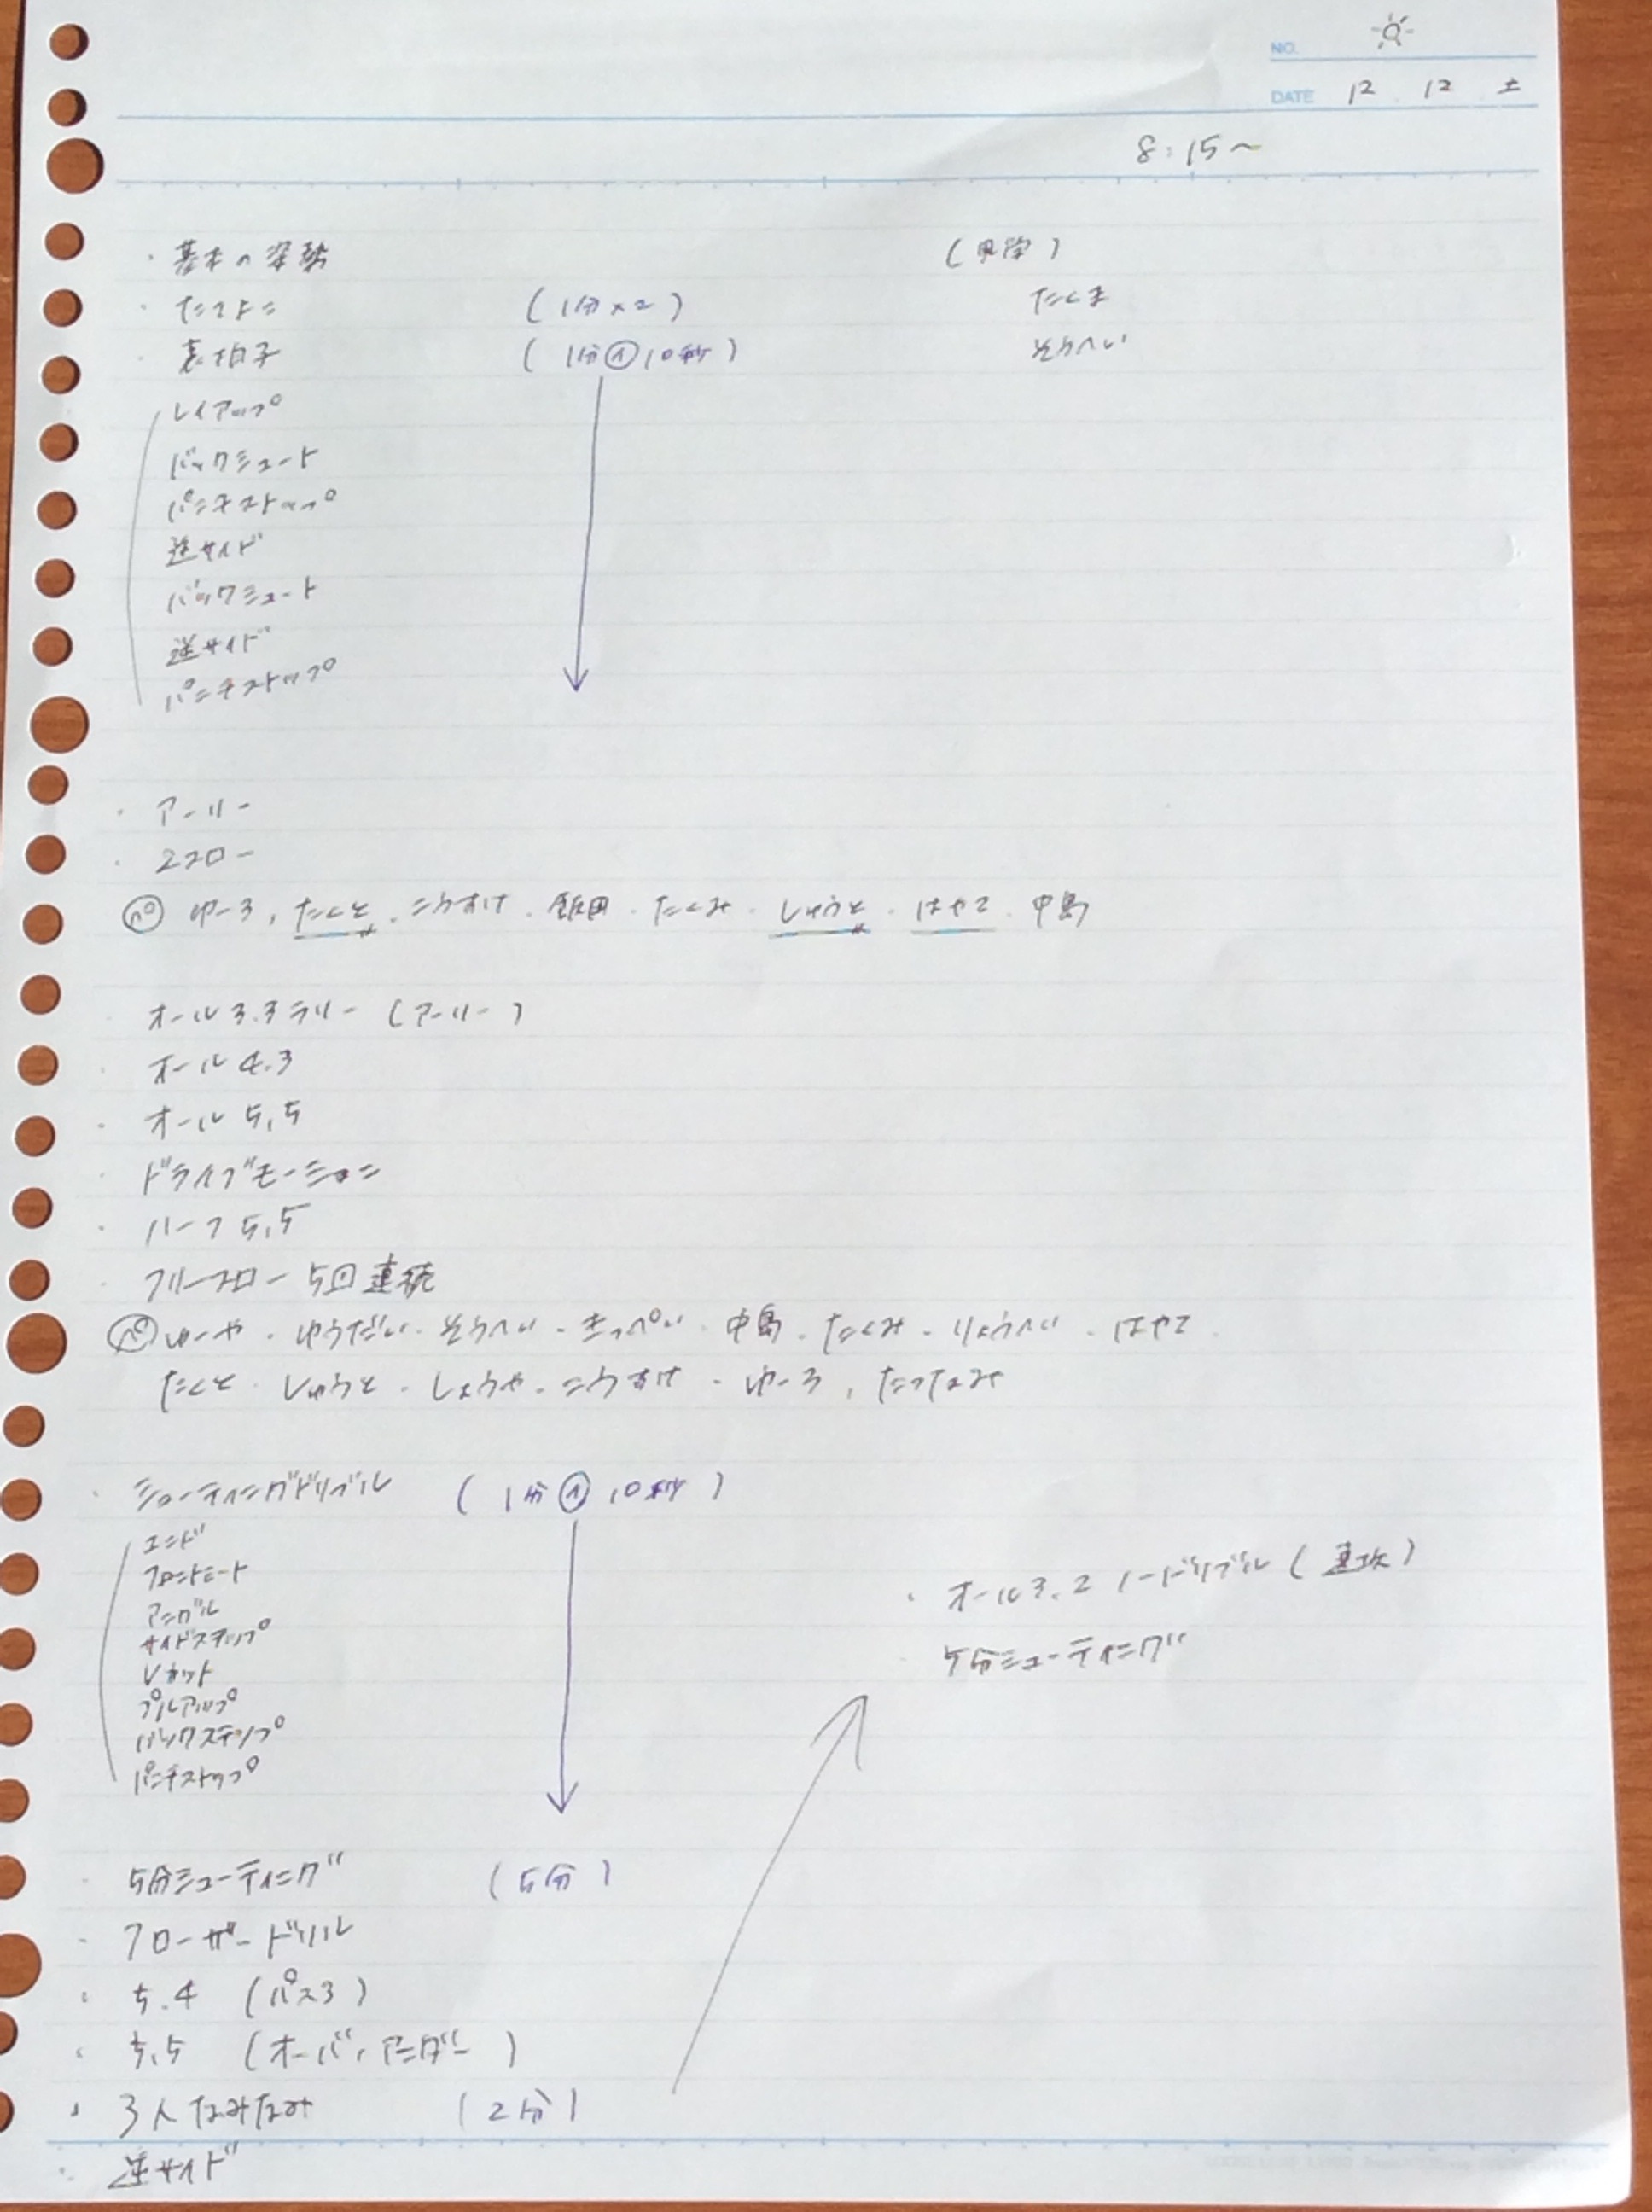 NO.
DATE 12 . 12 土
8:15~
・基本の姿勢
(見学)
・たてよこ (1分×2)
たくま
・裏拍子 (1分①10秒)
そうへい
レイアップ
バックシュート
パンチストップ
逆サイド
バックシュート
逆サイド
パンチストップ
・アーリー
・スフロー
ゆーろ, たくと, こうすけ . 飯田 . たくみ . しゅうと . はやて . 中島
・オール3.3ラリー (アーリー)
・オール4.3
・オール5,5
・ドライブモーション
・ハーフ5,5
・フリースロー 5回連続
ゆーや . ゆうだい . そうへい . きっぺい . 中島 . たくみ . りょうへい . はやて .
たくと . しゅうと . しょうや . こうすけ . ゆーろ , たつなみ
・シューティングドリブル (1分①10秒)
エンド
フロントミート
アングル
サイドステップ
Vカット
プルアップ
バックステップ
パンチストップ
・5分シューティング (5分)
・クローザードリル
・5.4 (パス3)
・5,5 (オーバ, アンダー)
・3人なみなみ (2分)
・逆サイド
・オール3.2 ノードリブル (速攻)
・5分シューティング